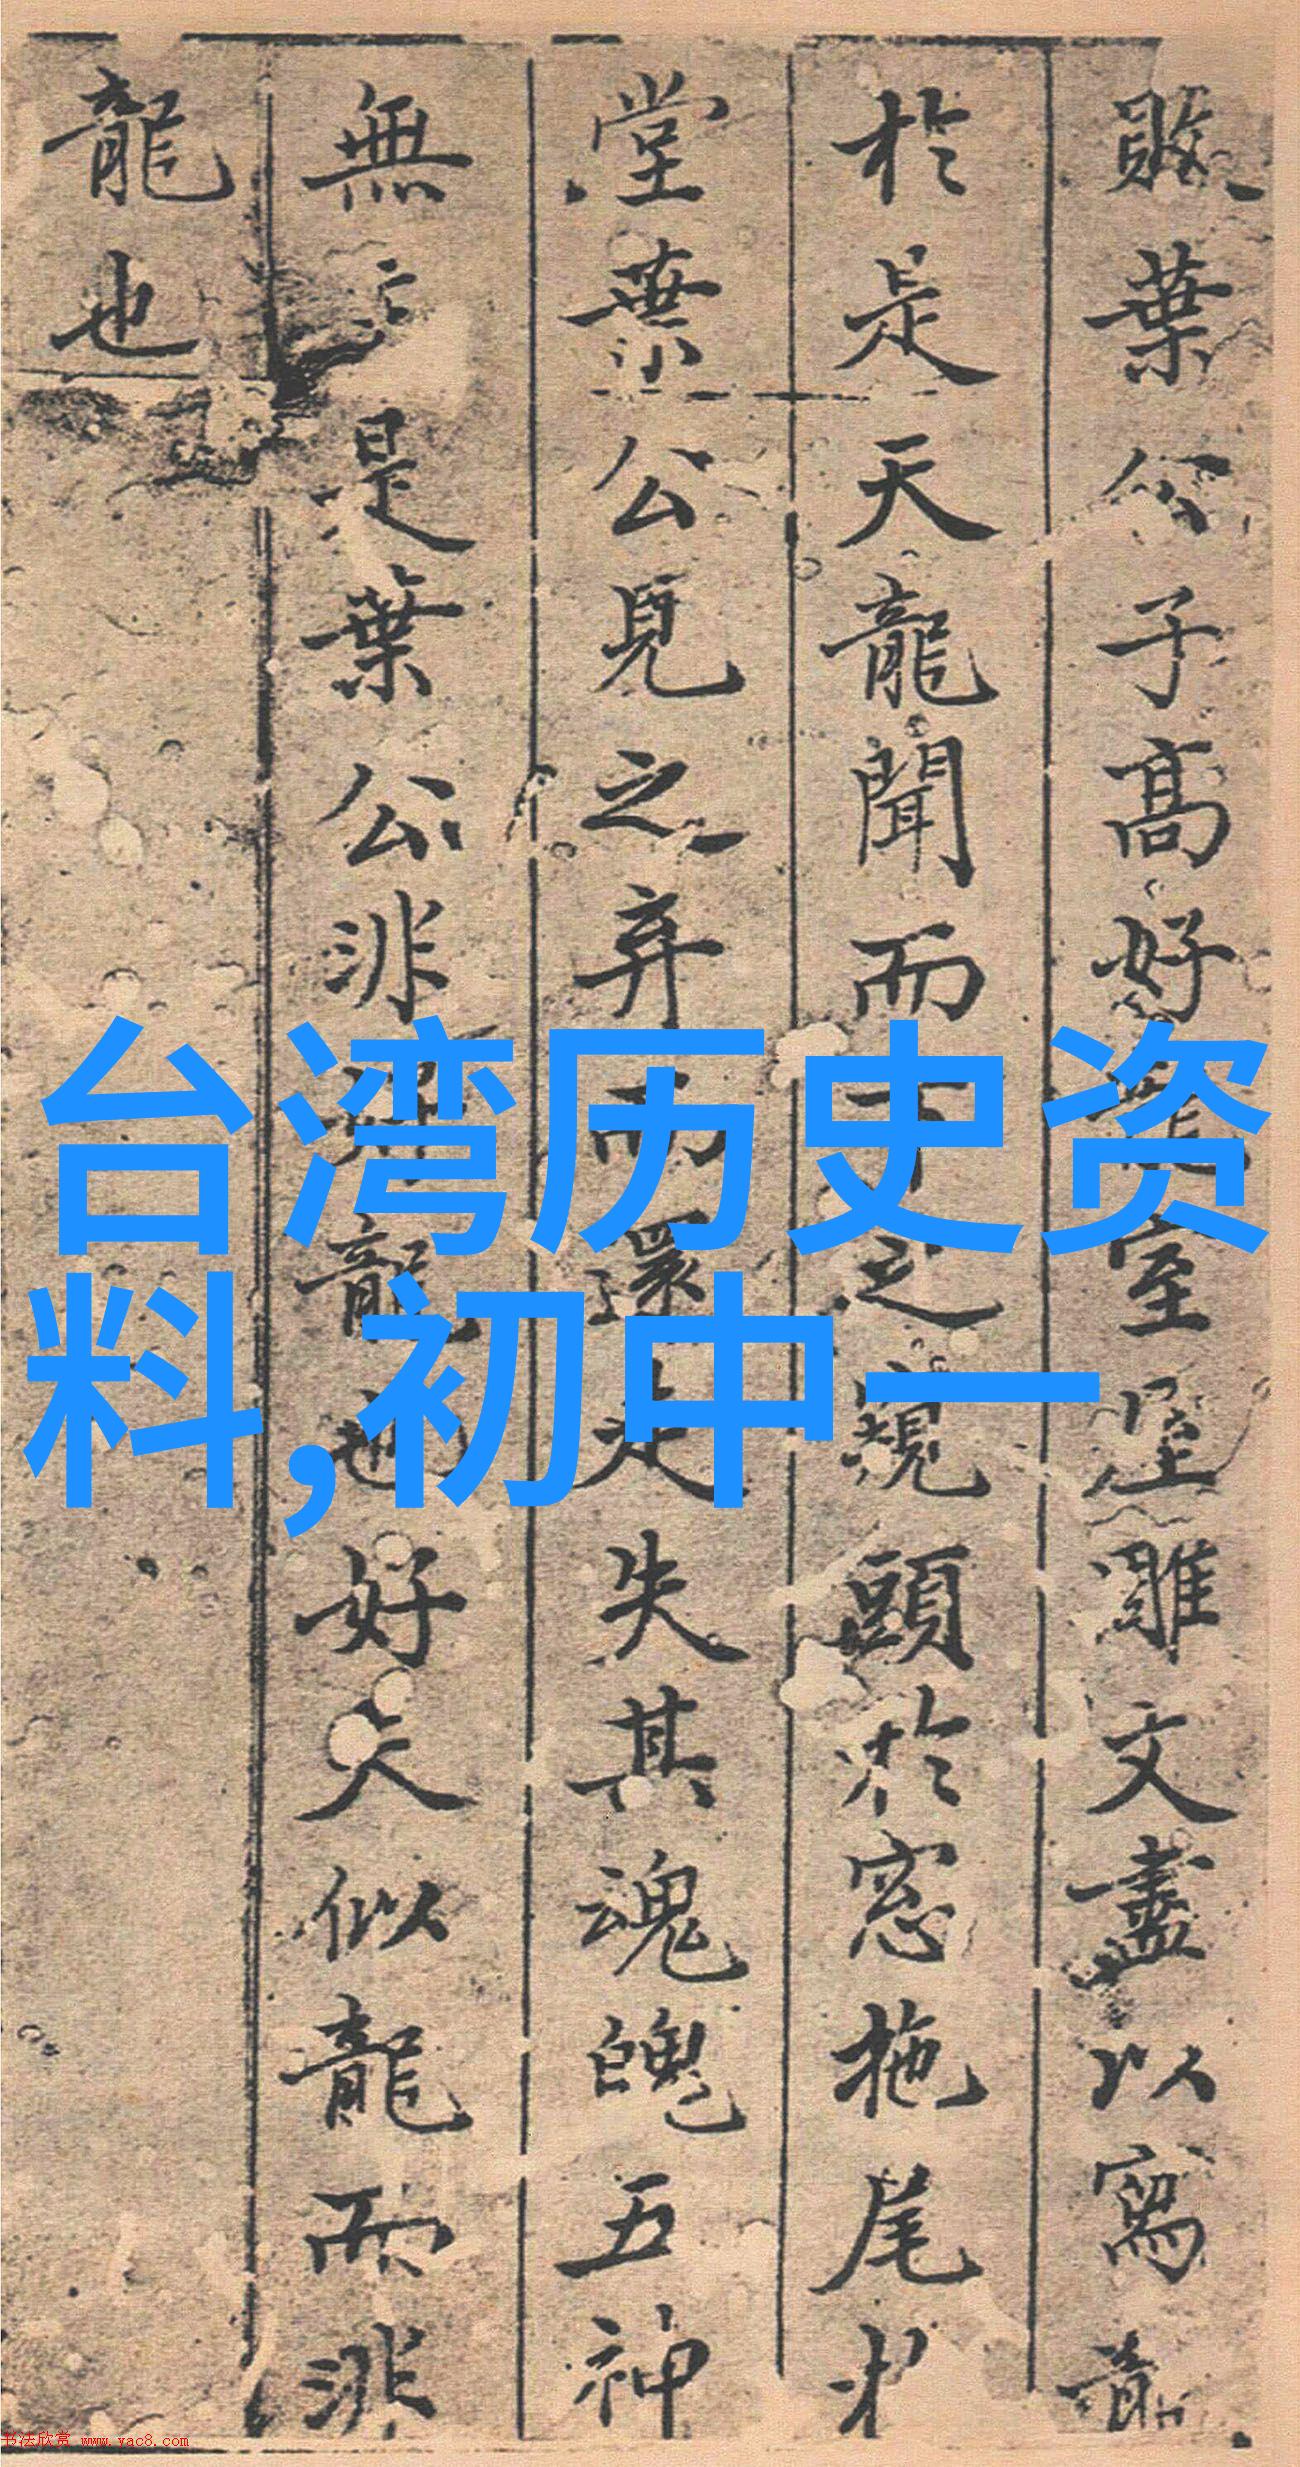 敗葉公子高好龍室屋雕文盡以寫龍
於是天龍聞而下之窺頭於窓拖尾於
堂葉公見之弃而還走失其魂魄五神
無主是葉公非好龍也好夫似龍而非
龍也
台湾历史资
料,初中一
书法欣赏 www.yac8.com